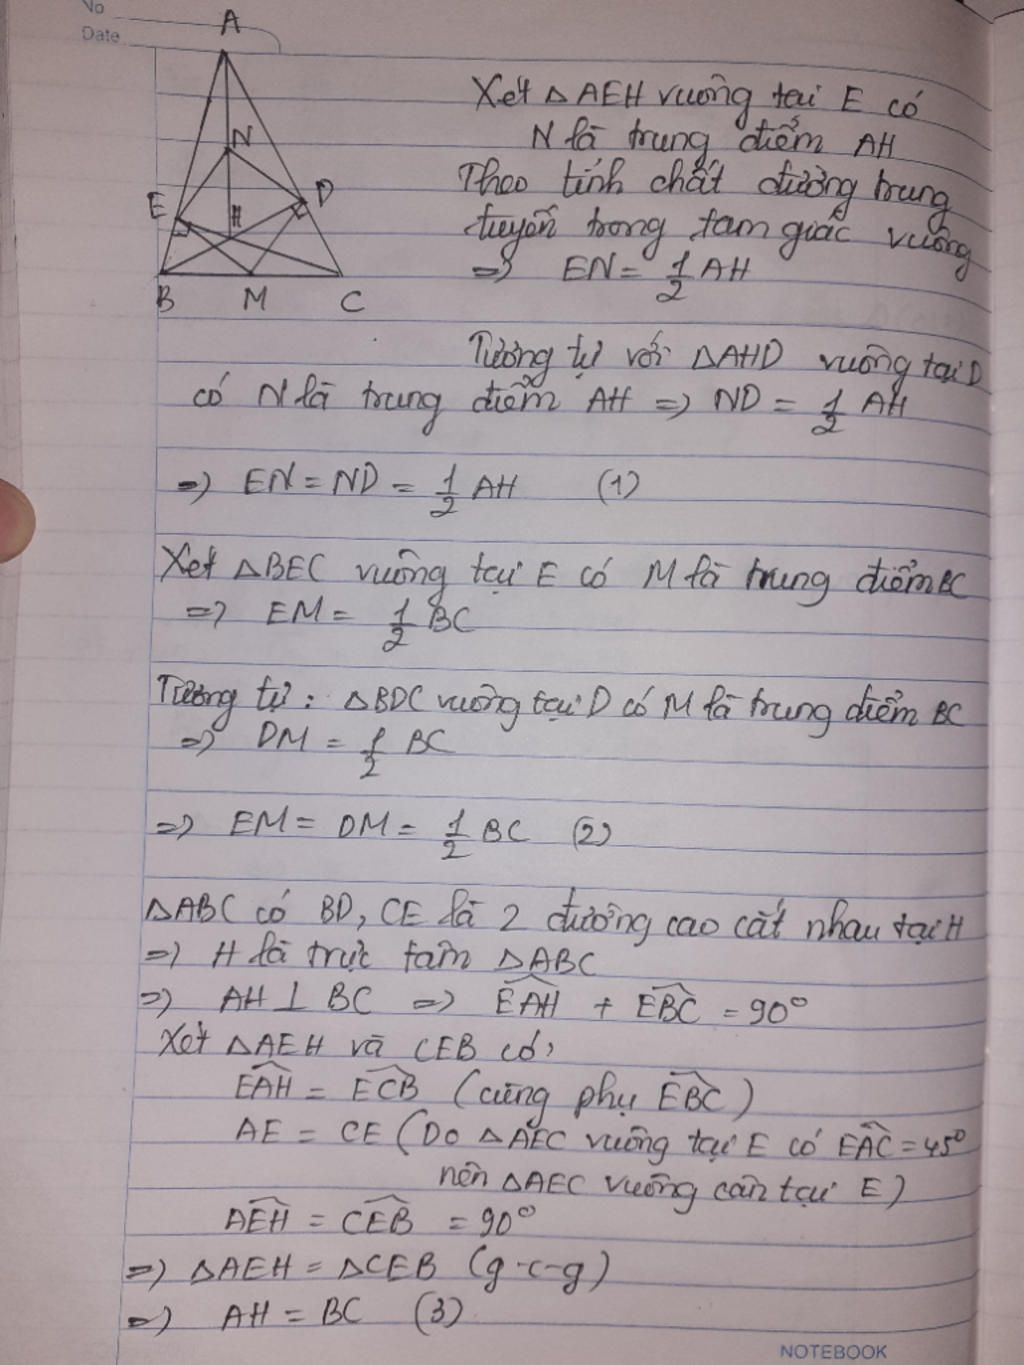 No
Date
A
N
E
D
H
B M C
Xét △AEH vuông tại E có
N là trung điểm AH
Theo tính chất đường trung
tuyến trong tam giác vuông
=> EN = 1/2 AH
Tương tự với △AHD vuông tại D
có N là trung điểm AH => ND = 1/2 AH
=> EN = ND = 1/2 AH (1)
Xét △BEC vuông tại E có M là trung điểm BC
=> EM = 1/2 BC
Tương tự : △BDC vuông tại D có M là trung điểm BC
=> DM = 1/2 BC
=> EM = DM = 1/2 BC (2)
△ABC có BD, CE là 2 đường cao cắt nhau tại H
=> H là trực tâm △ABC
=> AH ⊥ BC => \widehat{EAH} + \widehat{EBC} = 90°
Xét △AEH và CEB có,
\widehat{EAH} = \widehat{ECB} (cùng phụ \widehat{EBC})
AE = CE (Do △AEC vuông tại E có \widehat{EAC} = 45°
nên △AEC vuông cân tại E)
\widehat{AEH} = \widehat{CEB} = 90°
=> △AEH = △CEB (g-c-g)
=> AH = BC (3)
NOTEBOOK